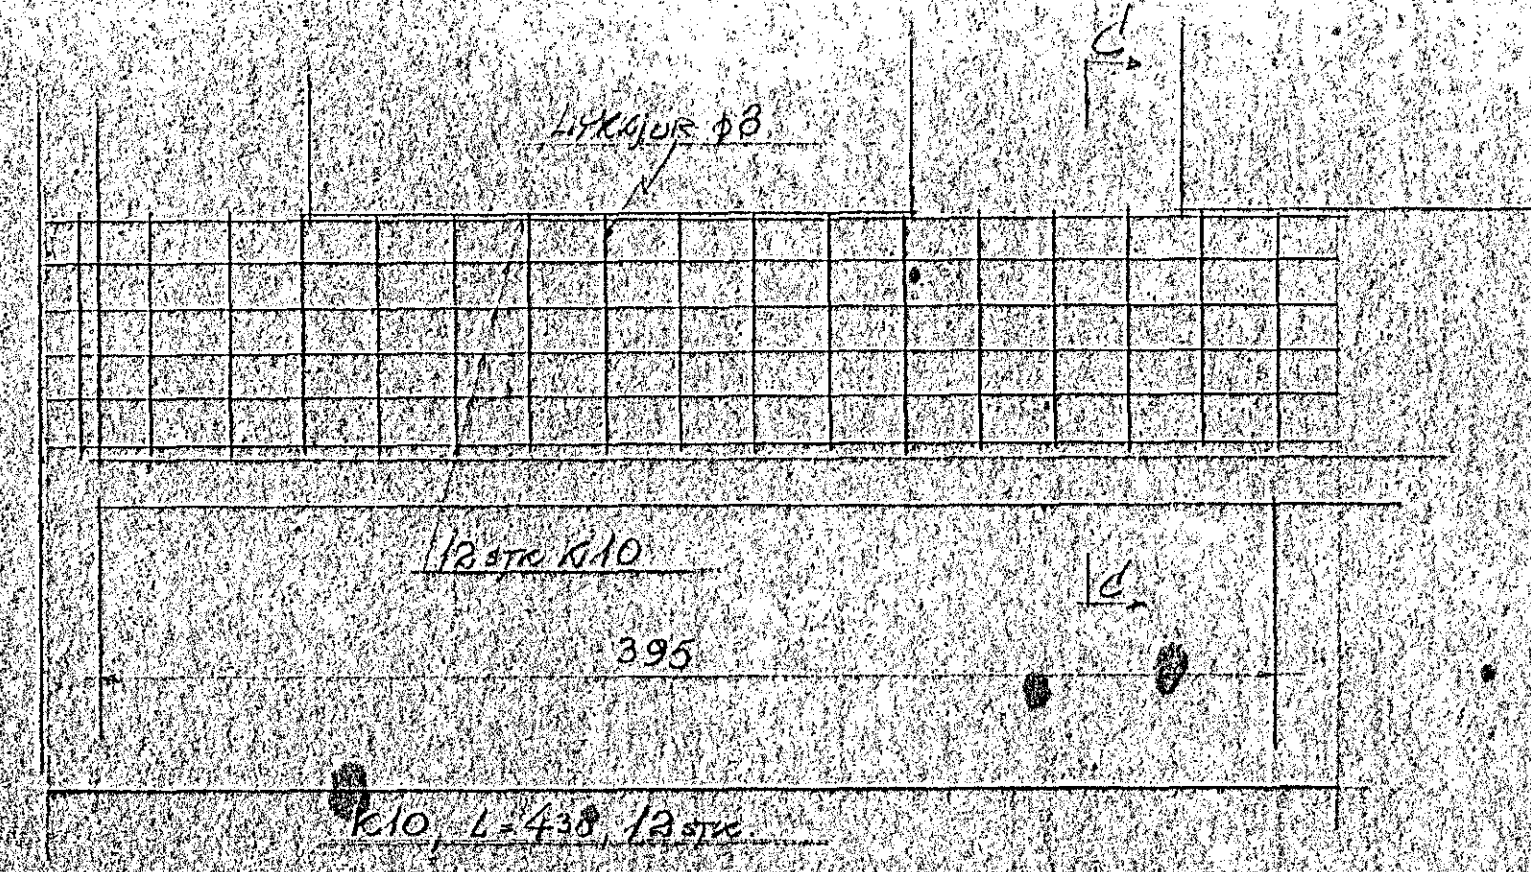 C
LYKKJUR ⌀8
12 STK K10
C
395
K10, L=438, 12 STK.